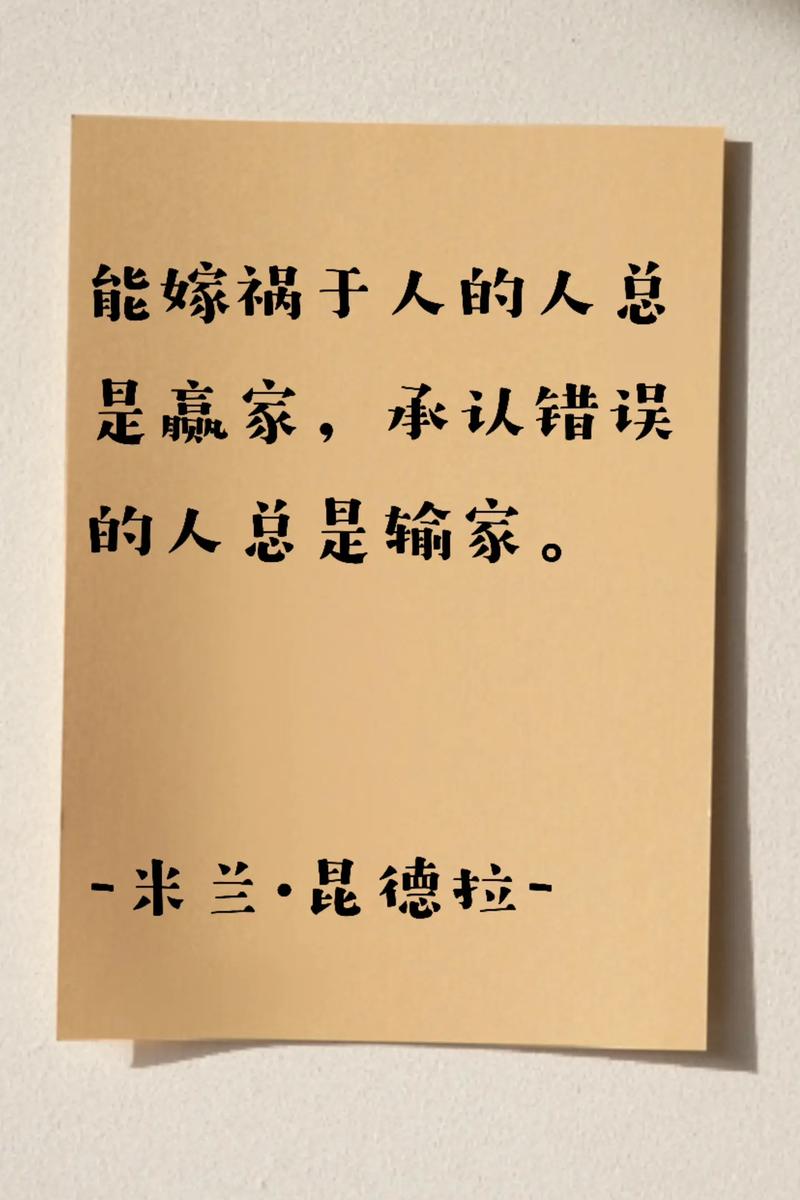 能嫁祸于人的人总
是赢家，承认错误
的人总是输家。
-米兰·昆德拉-